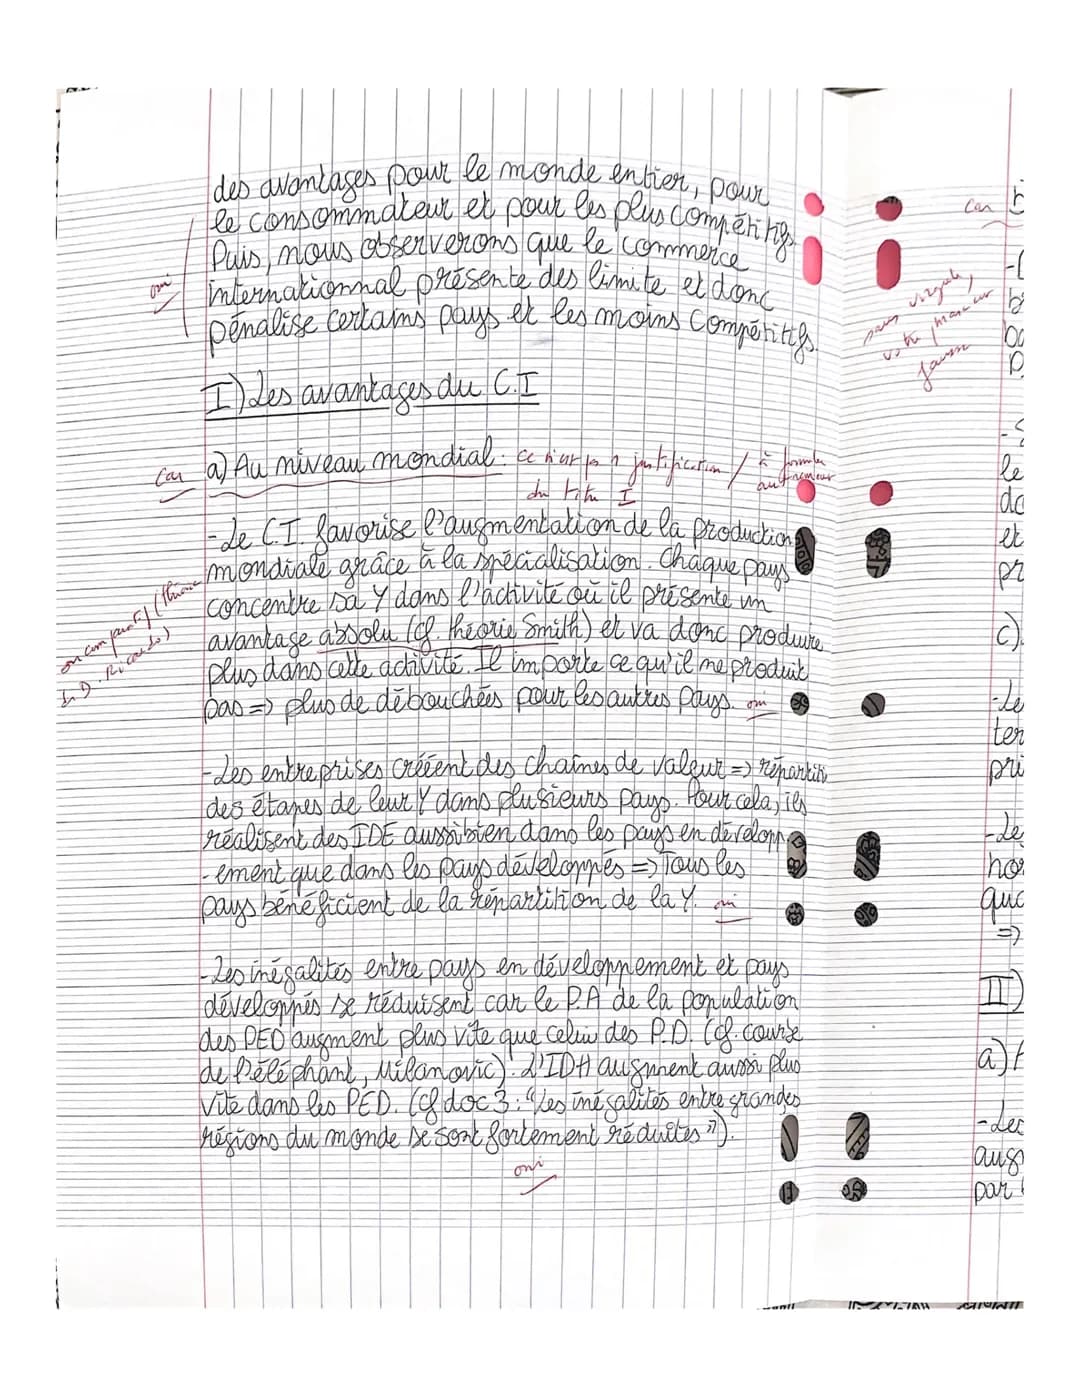 des avantages pour le monde entier, pour
le consommateur et pour les plus compétitifs.
Puis, nous observerons que le commerce
internationnal présente des limite et donc
pénalise certains pays et les moins compétitifs.
oui
I) Les avantages du C.I
Car a) Au niveau mondial : ce n'est pas 1 justification / à formuler
autrement
du titre I
- Le C.I. favorise l'augmentation de la production
mondiale grâce à la spécialisation. Chaque pays
concentre sa Y dans l'activité où il présente un
avantage absolu (cf. théorie Smith) et va donc produire
ou comparatif (théorie
de D. Ricardo)
plus dans cette activité. Il importe ce qu'il ne produit
pas => plus de débouchées pour les autres pays. oui
- Les entreprises créent des chaînes de valeur => répartiti
des étapes de leur Y dans plusieurs pays. Pour cela, ils
réalisent des IDE aussi bien dans les pays en développ-
-ement que dans les pays développés => Tous les
pays bénéficient de la répartition de la Y. oui
- Les inégalités entre pays en développement et pays
développés se réduisent car le P.A de la population
des PED augment plus vite que celui des P.D. (cf. courbe
de l'éléphant, Milanovic). L'IDH augment aussi plus
vite dans les PED. (cf doc 3 : "Les inégalités entre grandes
régions du monde se sont fortement réduites").
oui
car
sans virgule,
votre marqueur
le
do
et
pr
c)
- Le
ter
pri
- Le
ho
que
=>
II)
a)
- Les
aug
par